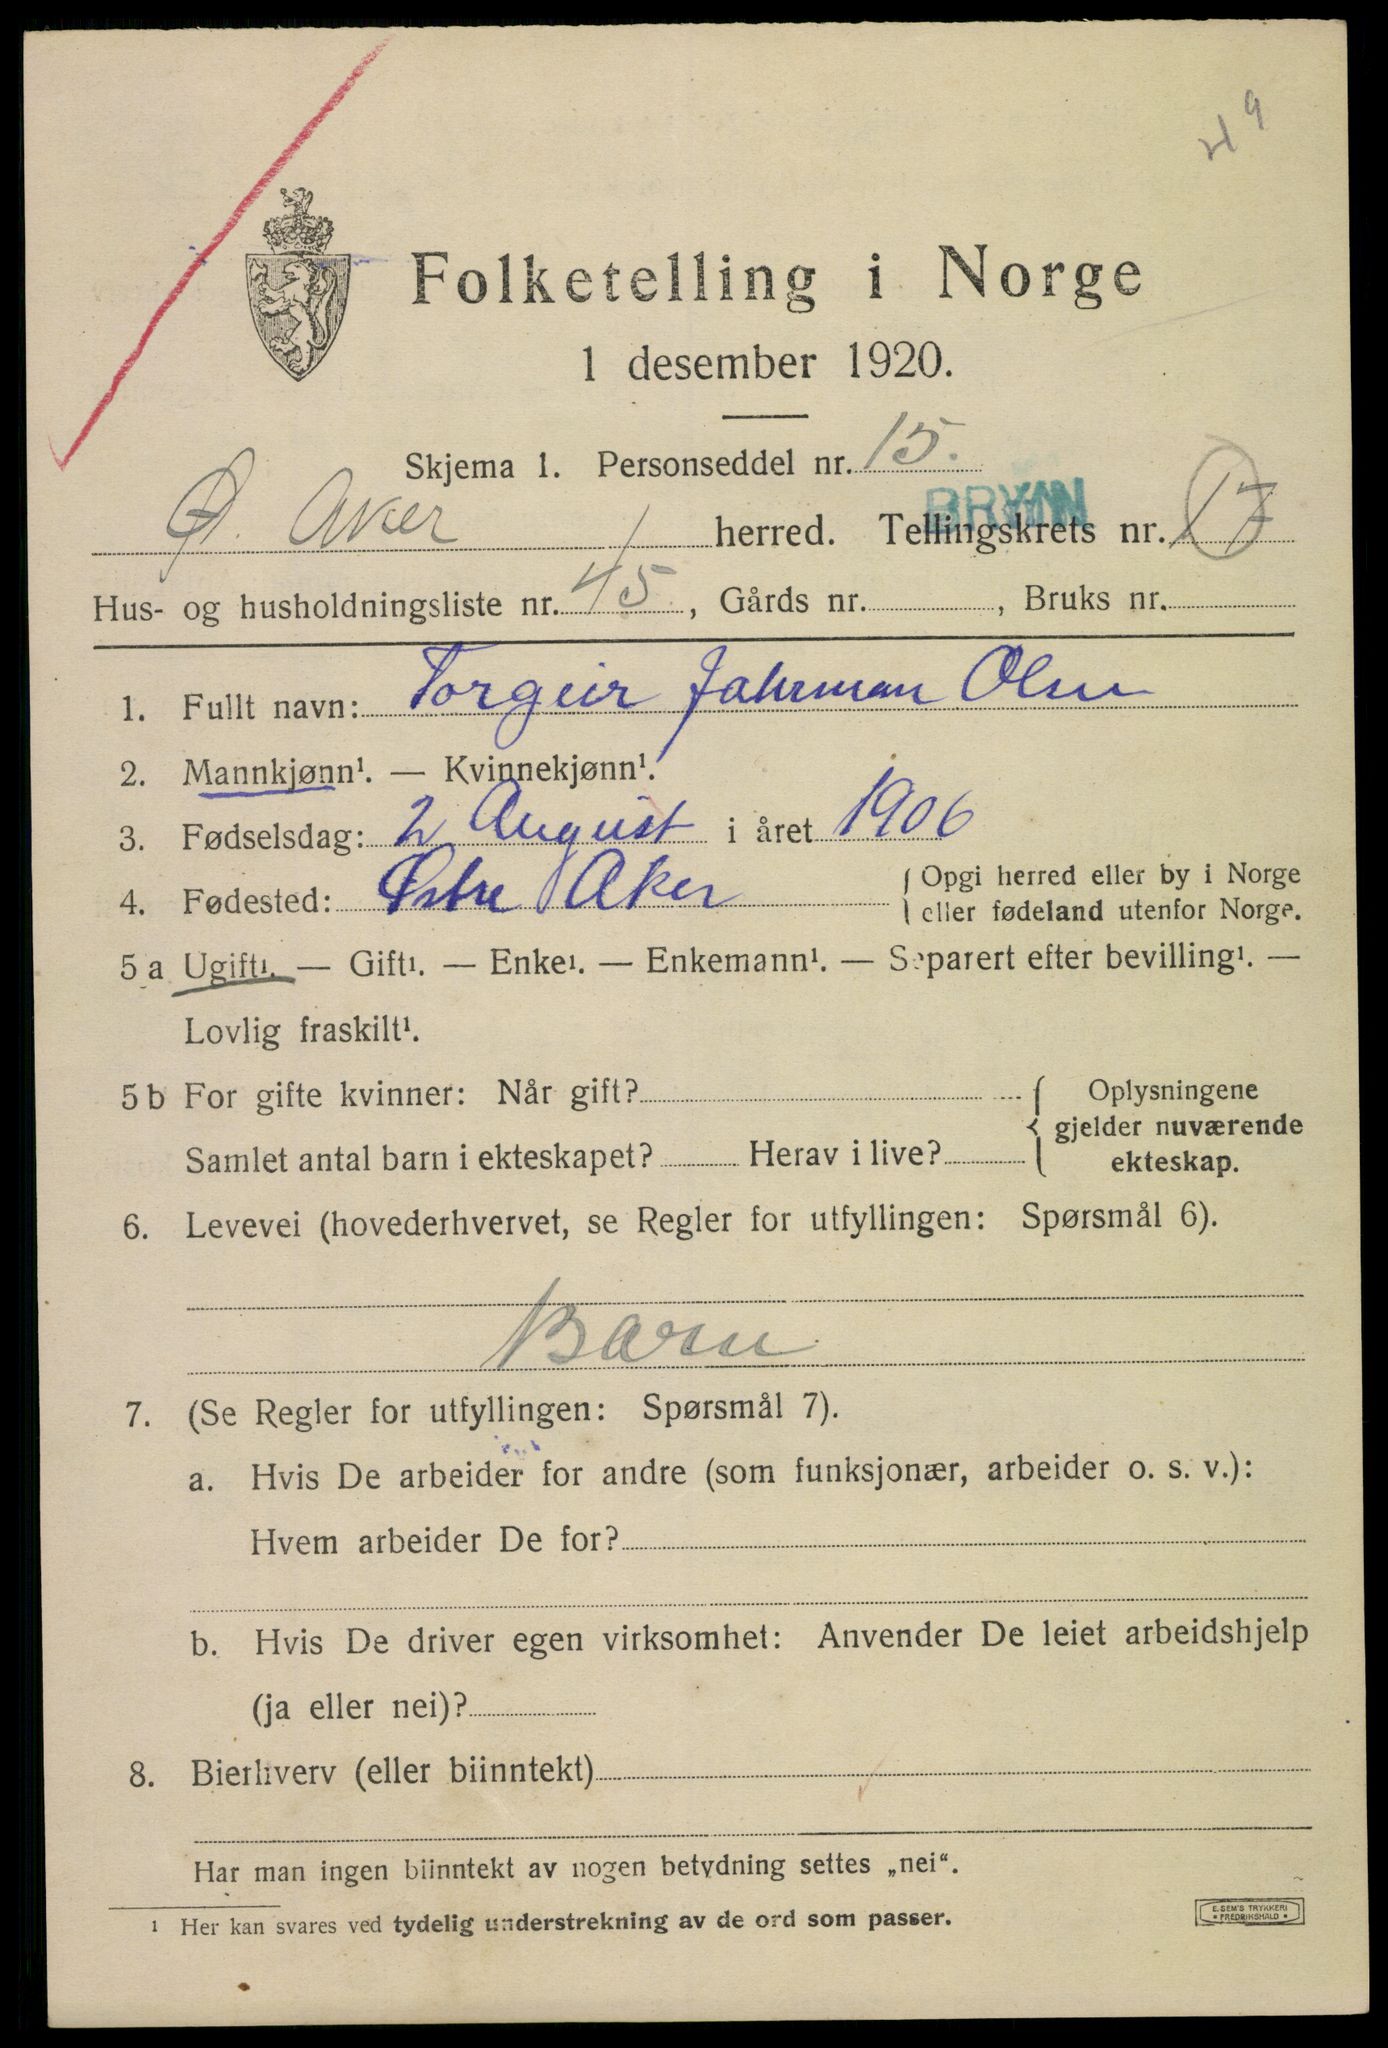 49
Folketelling i Norge
1 desember 1920.
Skjema 1. Personseddel nr. 15.
BRYN
Ø. Aker herred. Tellingskrets nr. 17
Hus- og husholdningsliste nr. 45, Gårds nr. , Bruks nr.
1. Fullt navn: Torgeir Jahrman Olsen
2. Mannkjønn¹. — Kvinnekjønn¹.
3. Fødselsdag: 2 August i året 1906
4. Fødested: Østre Aker { Opgi herred eller by i Norge
eller fødeland utenfor Norge.
5 a Ugift¹. — Gift¹. — Enke¹. — Enkemann¹. — Separert efter bevilling¹. —
Lovlig fraskilt¹.
5 b For gifte kvinner: Når gift? { Oplysningene
gjelder nuværende
Samlet antal barn i ekteskapet? Herav i live? ekteskap.
6. Levevei (hovederhvervet, se Regler for utfyllingen: Spørsmål 6).
Barn
7. (Se Regler for utfyllingen: Spørsmål 7).
a. Hvis De arbeider for andre (som funksjonær, arbeider o. s. v.):
Hvem arbeider De for?
b. Hvis De driver egen virksomhet: Anvender De leiet arbeidshjelp
(ja eller nei)?
8. Bierhverv (eller biinntekt)
Har man ingen biinntekt av nogen betydning settes „nei“.
¹ Her kan svares ved tydelig understrekning av de ord som passer.
E. SEM'S TRYKKERI
• FREDRIKSHALD •